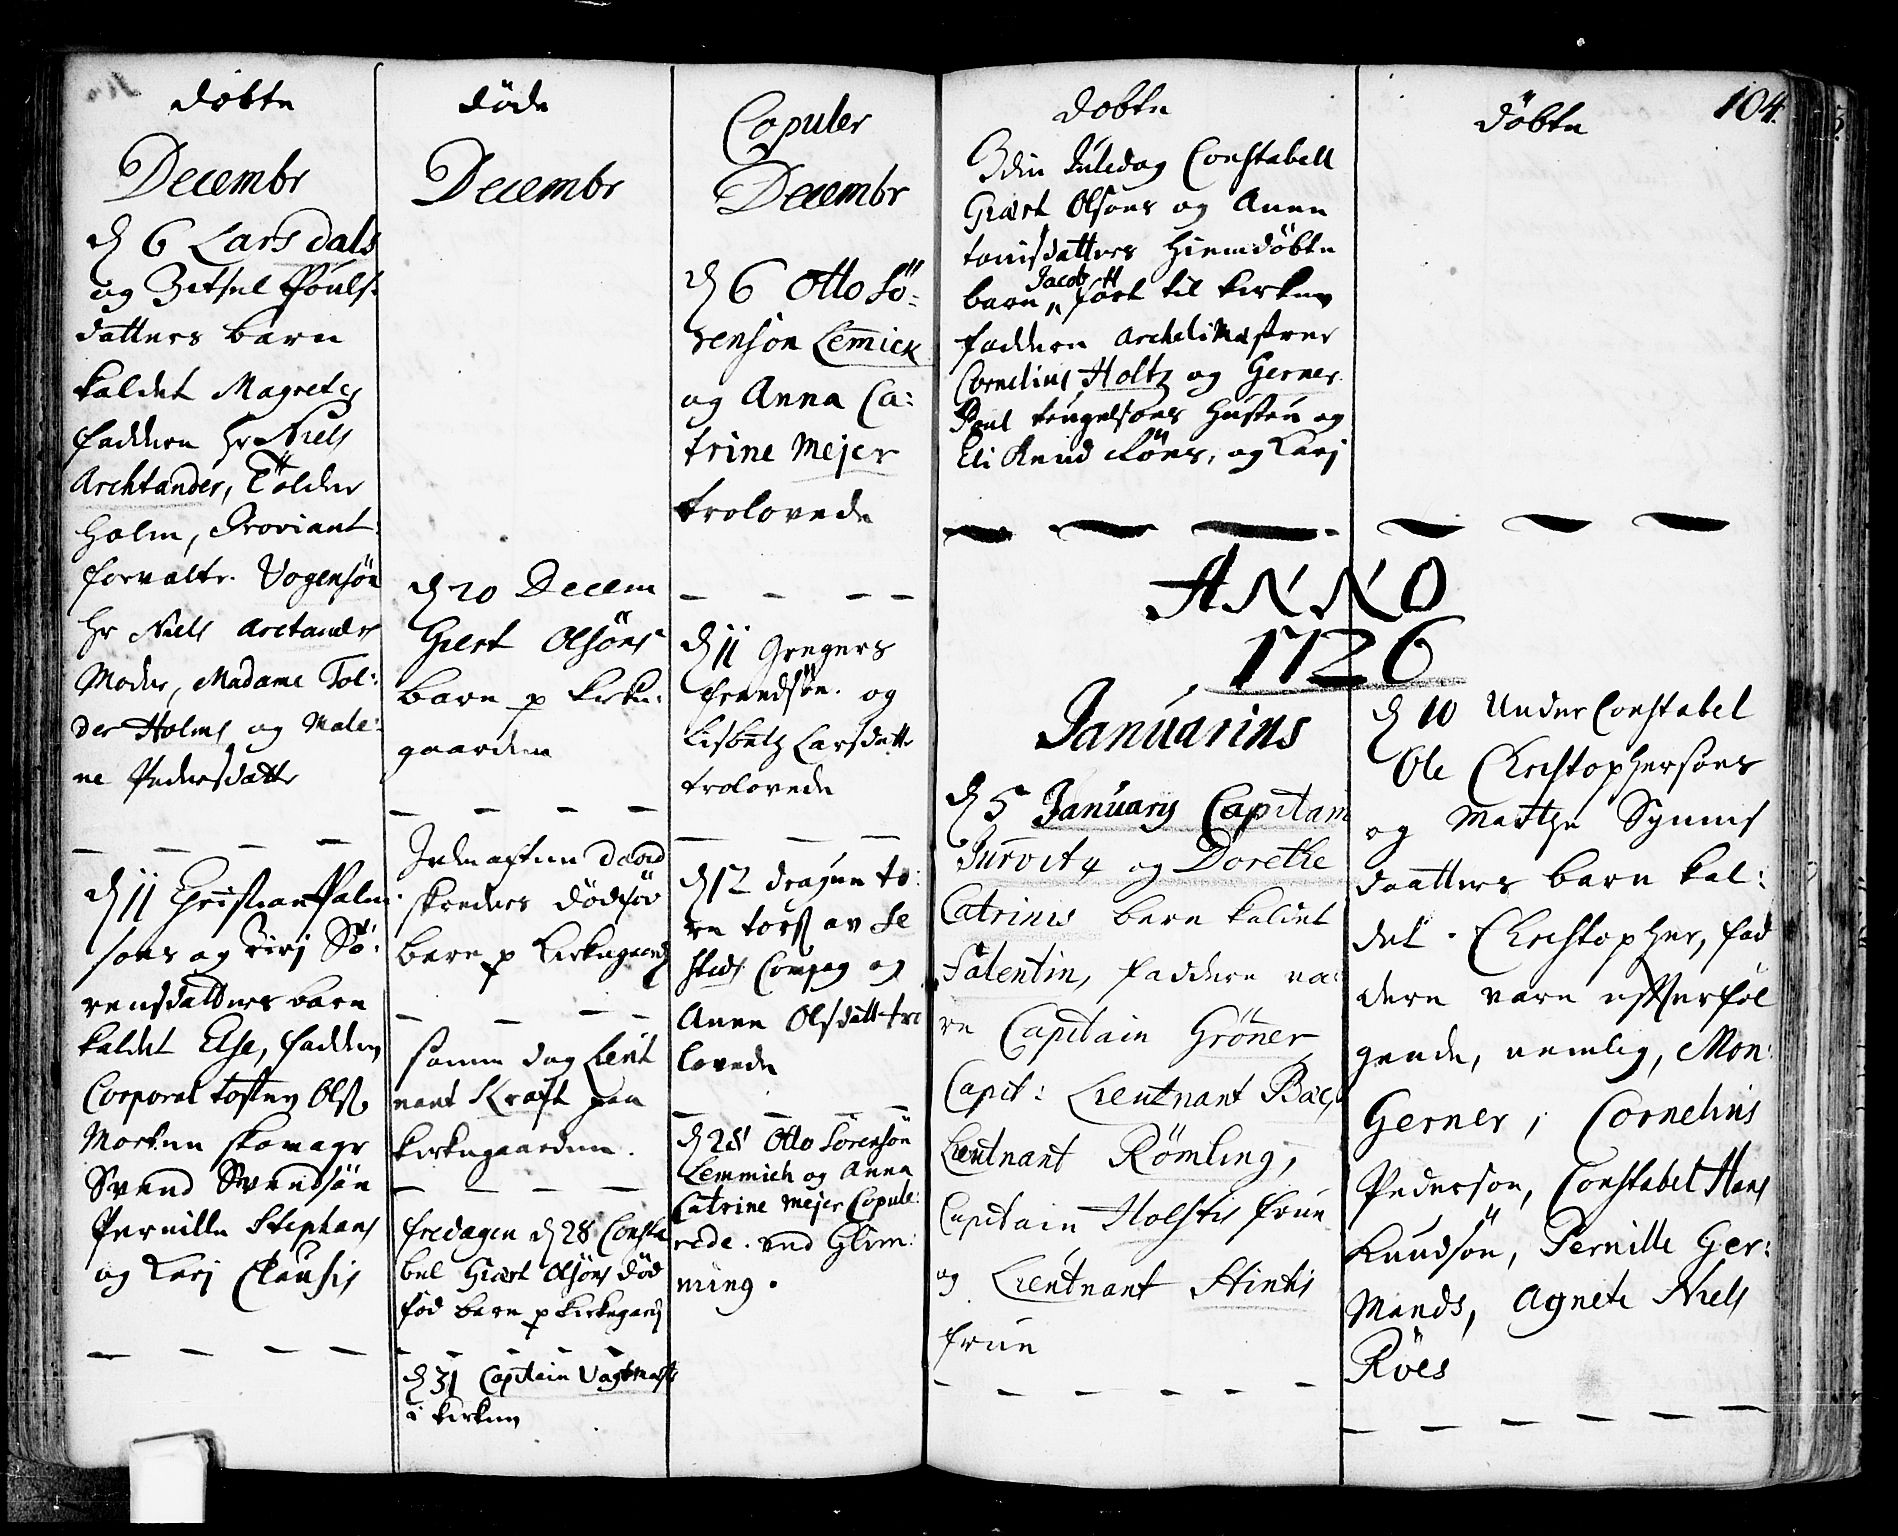 døbte
Decembr
d 6 Lars dals
og Zitsel Pouls-
datters barn
kaldet Magrete
faddern hr Niels
Archtander, Tolder
holm, Proviant
forvaltr. Vogensøn
hr Niels Arctanders
Moder, Madame Tol:
der Holms og Male:
ne Pedersdatter
d 11 Christian Palm
sons og Kirj Sö:
rensdatters barn
kaldet Else, faddern
Corporal tosten Ols
Morten skomagr
Svend Svendsøn
Pernille Stephans
og Karj Clausis
döde
Decembr
d 20 Decem
Giert Olsöns
barn p Kirke:
gaarden
Juleaften David
skreders dödföd
barn p Kirkegaard
samme dag Lieut
nant Kraft paa
kirkegaarden.
fredagen d 28 Consta
bel Giert Olsöns död
fød barn p kirkegaard
d 31 Capitain Vagtmest
i kirken
Copuler
Decembr
d 6 Otto Sö:
renson Lemick
og Anna Ca:
trine Mejer
trolovede
d 11 Gregers
frendsøn. og
Lisbetz Larsdatter
trolovede
d 12 dragun to:
re tors av Se
steds Compag og
Anne Olsdatt tro
lovede
d 28 Otto Sörensön
Lemmich og Anna
Catrine Mejer Copule:
rede. ved Glim:
ming.
døbte
3den Juledag Constabell
Giært Olsöns og Anne
tonisdatters hiemdöbte
barn Jacob ført til kirken
faddern Archelimestrer
Cornelius Holtz og Gerner
Poul Engelsøns hustru og
Eli Knud Röers, og Karj
ANNO
1726
Januarius
d 5 January Capitain
og Dorethe
Catrines barn kaldet
Salentin, faddern va:
re Capitain Gröner
Capit: Lieutnant Bæ
Lieutnant Römling,
Capitain Holstis frue
og Lieutnant Hintis
frue
104.
döbte
d 10 Under Constabel
Ole Christophersøns
og Martha Symens
daatters barn kal:
det Christopher, fad
dern varn efterföl
gende, nemlig, Mon:
Gerner, Cornelius
Pederson, Constabel Hans
Knudsøn, Pernille Ger:
Mands, Agnete Niels
Röes